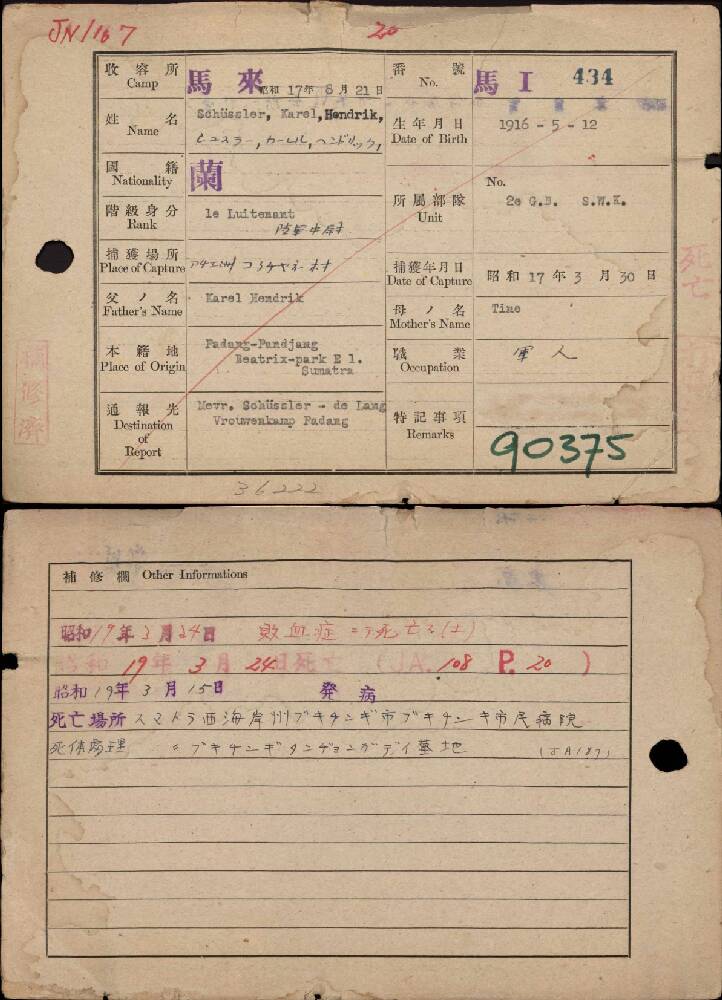 JN/167
20
收容所 Camp 馬來 昭和 17年 8月 21日
番號 No. 馬 I 434
姓名 Name Schüssler, Karel, Hendrik,
ヒュスラー, カーレル, ヘンドリック,
生年月日 Date of Birth 1916 - 5 - 12
國籍 Nationality 蘭
階級身分 Rank 1e Luitenant
陸軍中尉
所屬部隊 Unit No.
2e G.B. S.W.K.
捕獲場所 Place of Capture
捕獲年月日 Date of Capture 昭和 17 年 3 月 30 日
父ノ名 Father's Name Karel Hendrik
母ノ名 Mother's Name Tine
本籍地 Place of Origin Padang-Pandjang
Beatrix-park E 1.
Sumatra
職業 Occupation 軍人
通報先 Destination of Report Mevr. Schüssler - de Lang
Vrouwenkamp Padang
特記事項 Remarks
90375
死亡
補修濟
36222
補修欄 Other Informations
昭和19年3月24日 敗血症ニテ死亡ス(土)
昭和19年3月24日死亡 (JA. 108 P. 20 )
昭和19年3月15日 発病
死亡場所 スマトラ西海岸州ブキチンギ市ブキチンギ市民病院
死体處理 〃 ブキチンギタンヂョンガデイ墓地 (JA187)